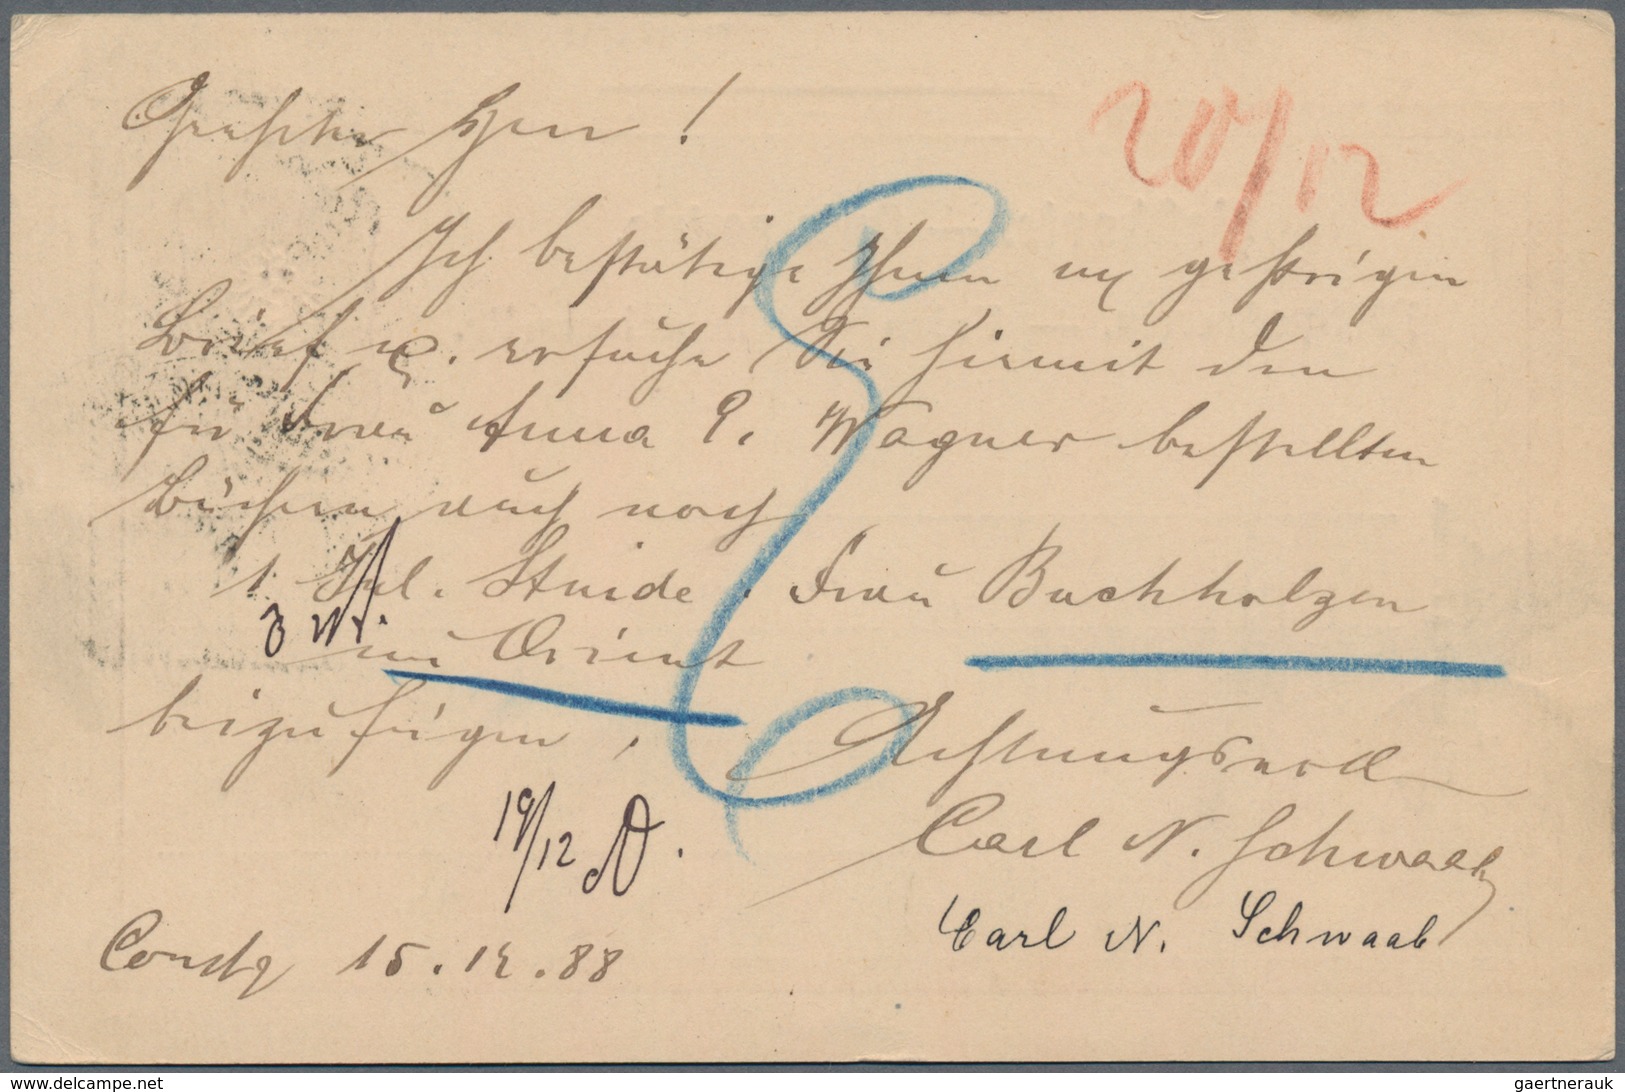 Geehrter Herr!
20/12
Ich bestätige Ihnen m. gestrigen
Brief u. ersuche Sie hiermit den
für Frau Anna P. Wagner bestellten
Büchern auch noch
1. Jul. Stinde. Frau Buchholzen
3 M.
im Orient
beizufügen.
Achtungsvoll
19/12
Carl N. Schwaab
Carl N. Schwaab
15.12.88
www.delcampe.net
gaertnerauk